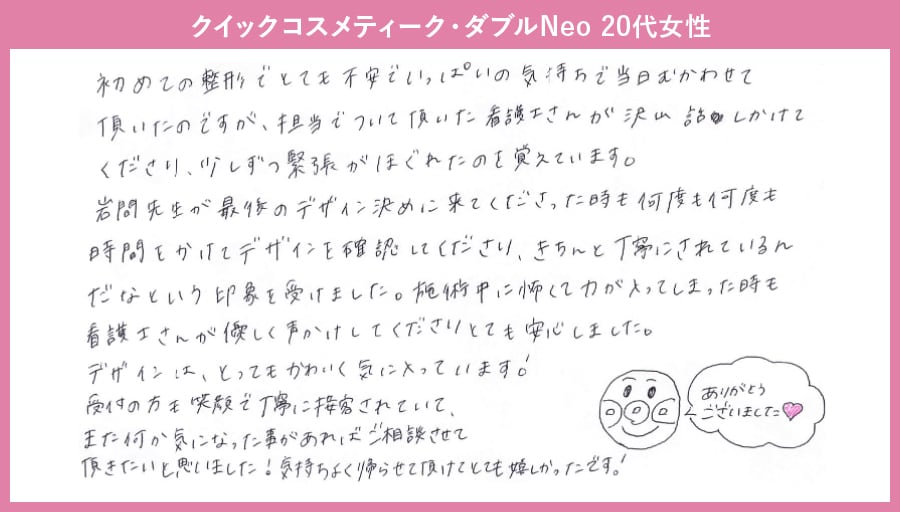 クイックコスメティーク・ダブルNeo 20代女性
初めての整形でとても不安でいっぱいの気持ちで当日むかわせて
頂いたのですが、担当でついて頂いた看護士さんが沢山 話しかけて
くださり、少しずつ緊張がほぐれたのを覚えています。
岩間先生が最後のデザイン決めに来てくださった時も何度も何度も
時間をかけてデザインを確認してくださり、きちんと丁寧にされているん
だなという印象を受けました。施術中に怖くて力が入ってしまった時も
看護士さんが優しく声かけしてくださりとても安心しました。
デザインは、とってもかわいく気に入っています！
受付の方も笑顔で丁寧に接客されていて、
また何か気になった事があればご相談させて
頂きたいと思いました！気持ちよく帰らせて頂けてとても嬉しかったです！
ありがとう
ございました